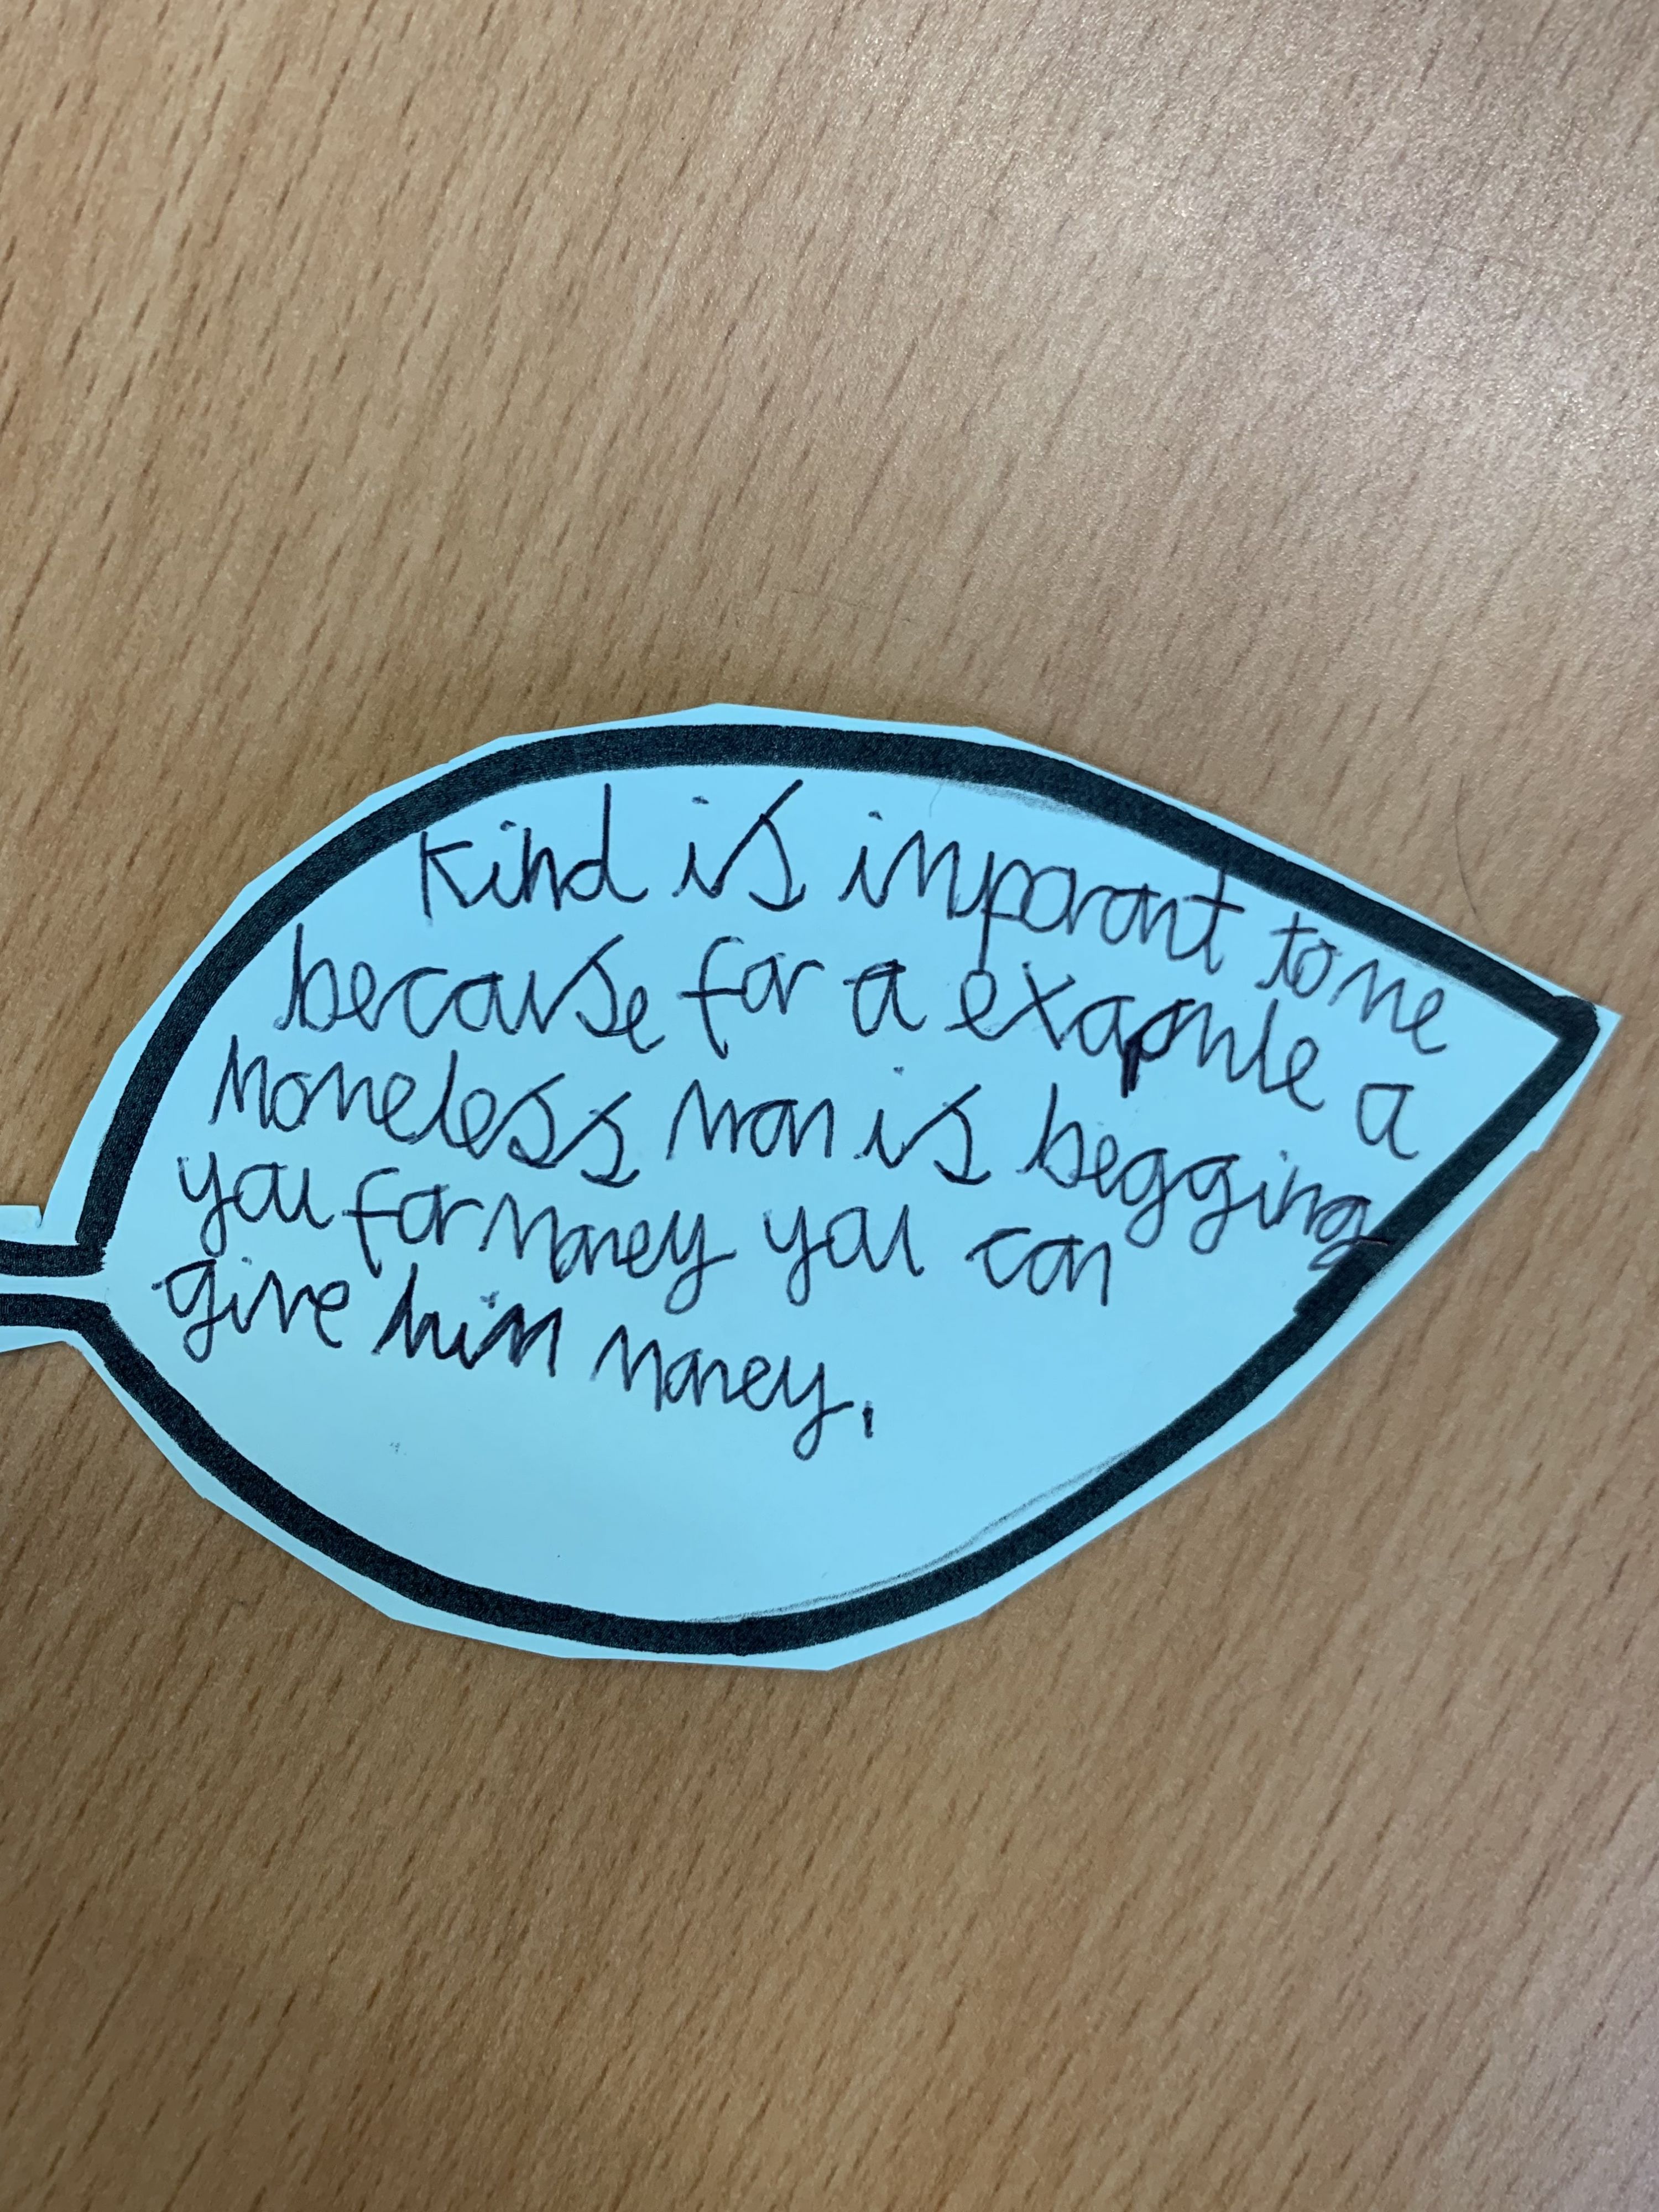 Kind is imporant to me
because for a exapmle a
homeless man is begging
you for money you can
give him money.